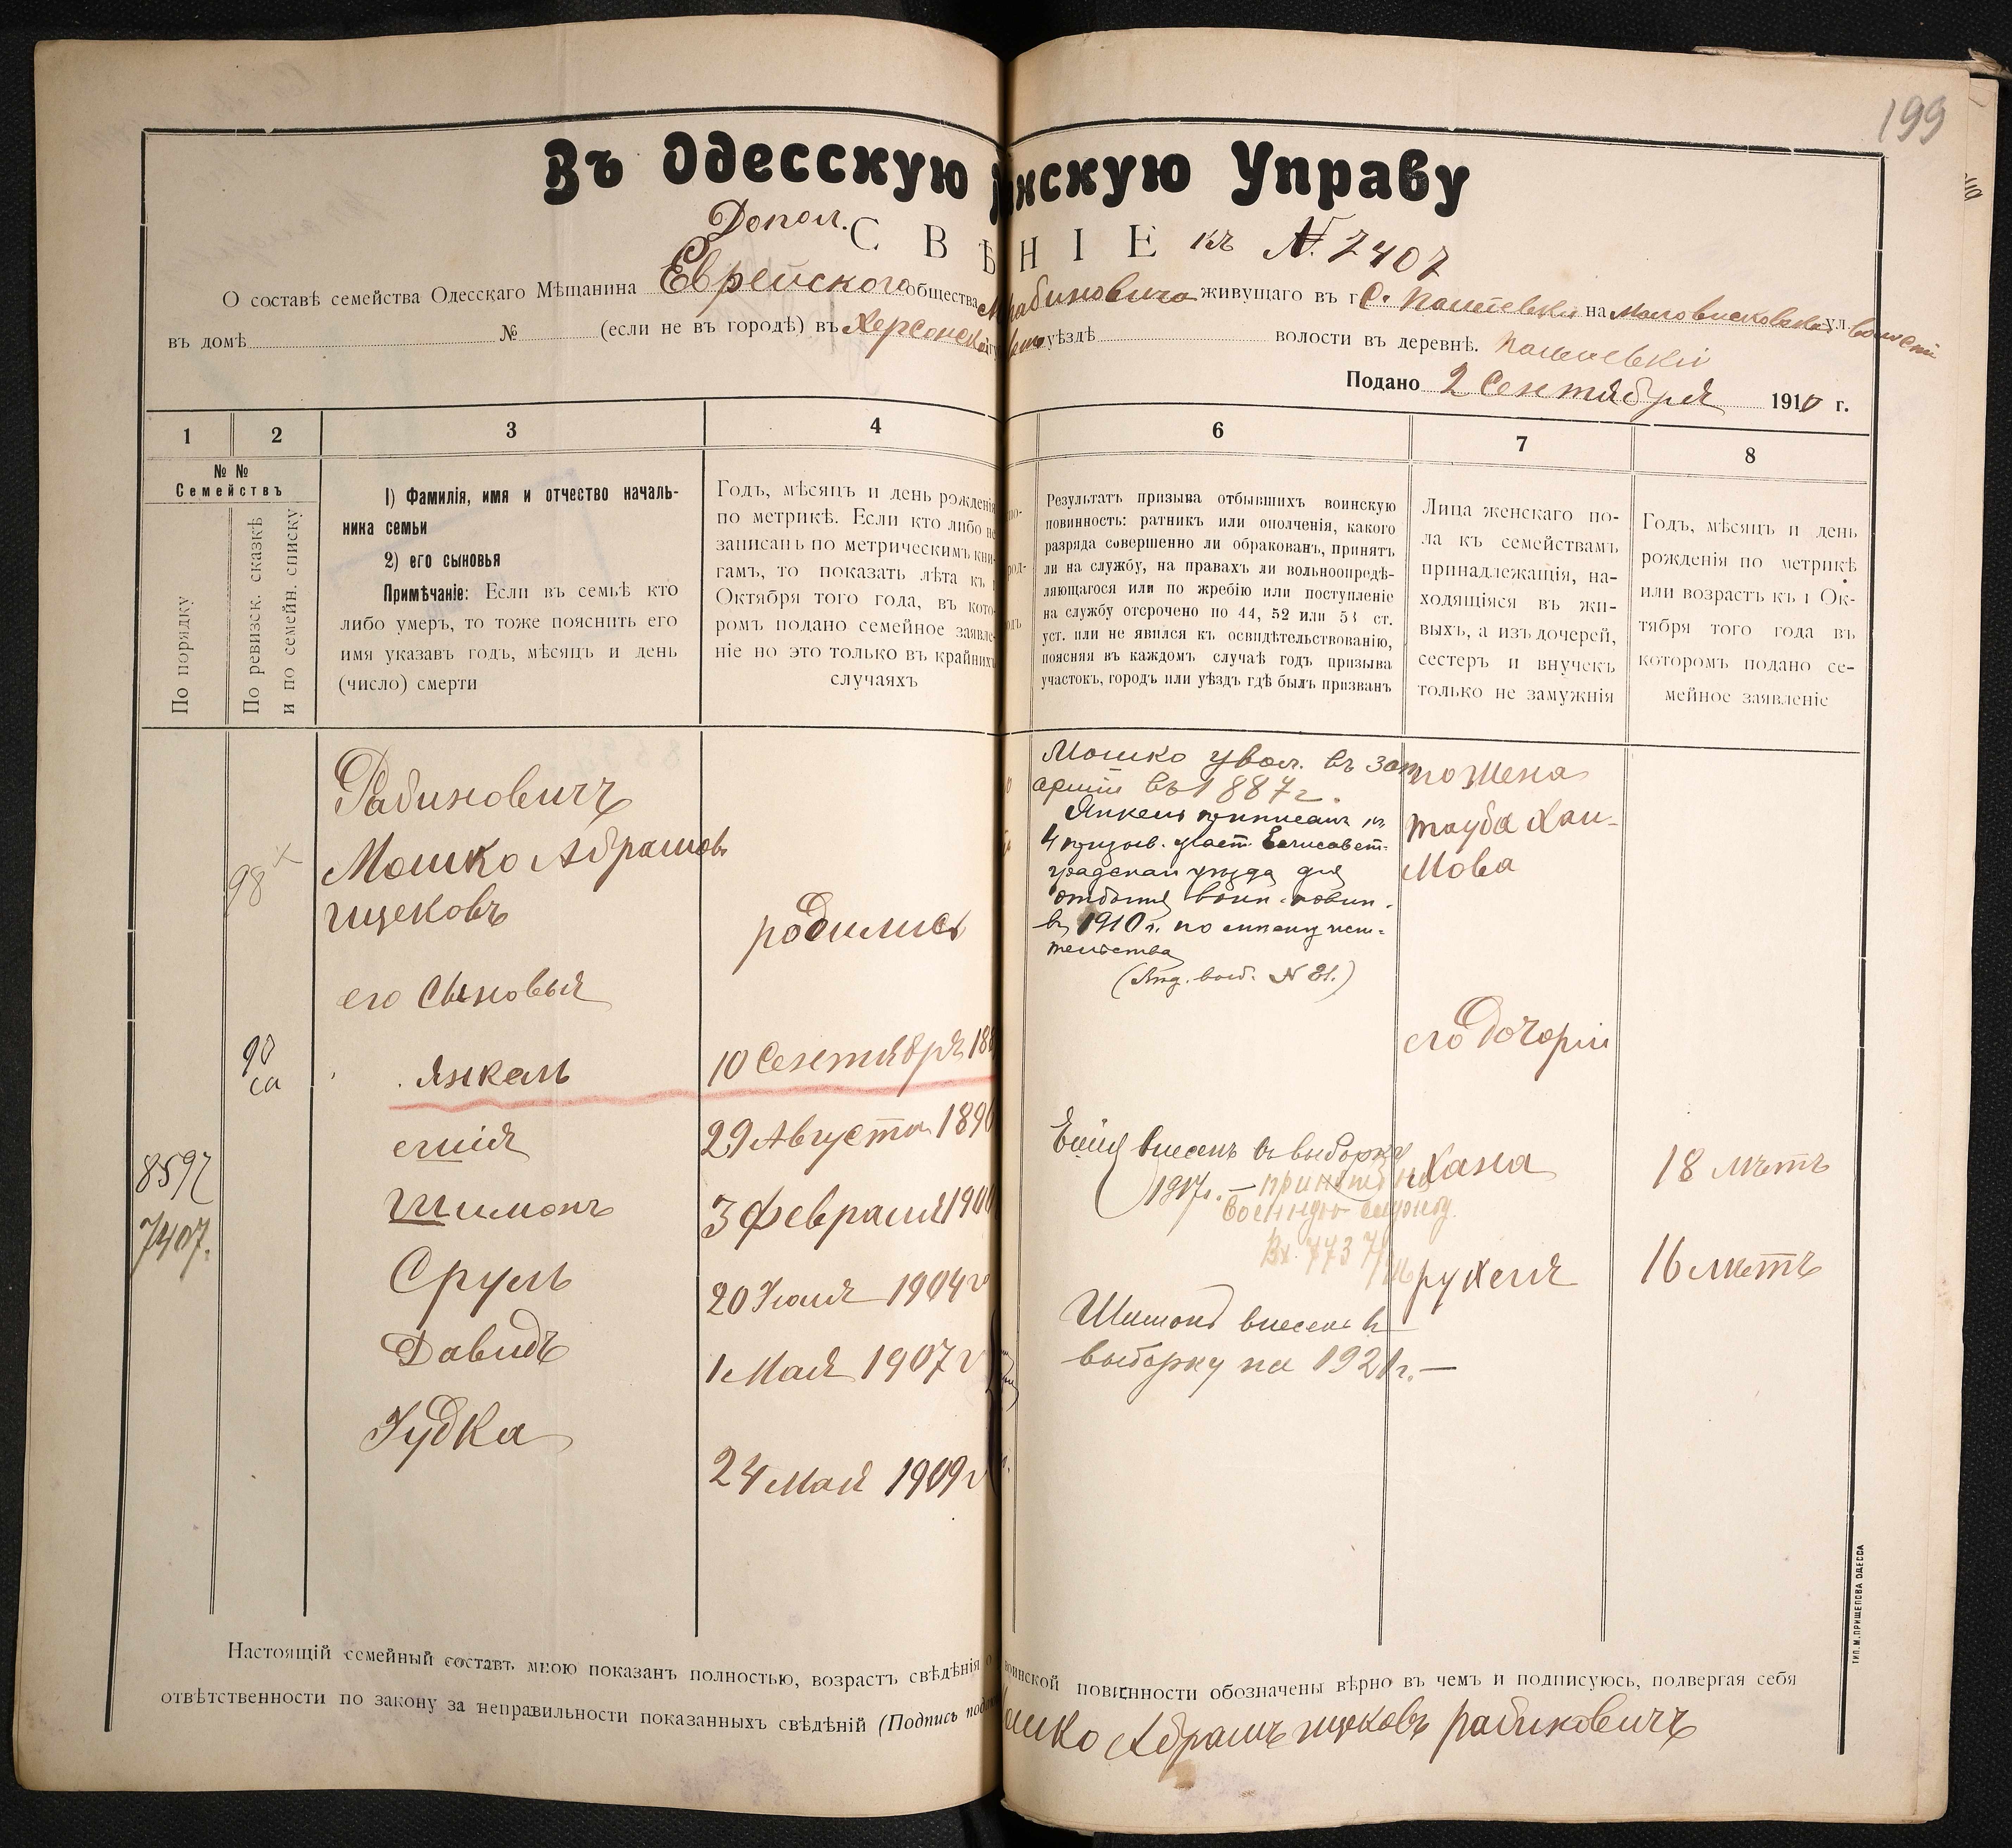 199
Въ Одесскую нскую Управу
Допол. С В Ѣ Н І Е къ №. 7407
О составѣ семейства Одесскаго Мѣщанина Еврейскаго общества М Рабиновича живущаго въ г С. на Маловисковской ул. волости
въ домѣ № (если не въ городѣ) въ Херсонской уѣздѣ волости въ деревнѣ.
Подано 2 Сентября 1910 г.
1 2 3 4 6 7 8
№ № Семействъ
По порядку
По ревизск. сказкѣ
и по семейн. списку
1) Фамилія, имя и отчество началь-
ника семьи
2) его сыновья
Примѣчаніе: Если въ семьѣ кто
либо умеръ, то тоже пояснить его
имя указавъ годъ, мѣсяцъ и день
(число) смерти
Годъ, мѣсяцъ и день рожденія
по метрикѣ. Если кто либо не
записанъ по метрическимъ кни-
гамъ, то показать лѣта къ 1
Октября того года, въ кото-
ромъ подано семейное заявле-
ніе но это только въ крайнихъ
случаяхъ
Результатъ призыва отбывшихъ воинскую
повинность: ратникъ или ополченія, какого
разряда совершенно ли обракованъ, принятъ
ли на службу, на правахъ ли вольноопредѣ-
ляющагося или по жребію или поступленіе
на службу отсрочено по 44, 52 или 53 ст.
уст. или не явился къ освидѣтельствованію,
поясняя въ каждомъ случаѣ годъ призыва
участокъ, городъ или уѣздъ гдѣ былъ призванъ
Лица женскаго по-
ла къ семействамъ
принадлежащія, на-
ходящіяся въ жи-
выхъ, а изъ дочерей,
сестеръ и внучекъ
только не замужнія
Годъ, мѣсяцъ и день
рожденія по метрикѣ
или возрастъ къ 1 Ок-
тября того года въ
которомъ подано се-
мейное заявленіе
Рабиновичъ
98 Мошко Абрамовъ
Ицековъ
родились
его Сыновья
90
са
Янкель 10 Сентября 188
ешія 29 Августа 1896
8597
Шимонъ 3 февраля 1900
7407.
Сруль 20 Іюля 1904 г
Давидъ 1 Мая 1907 г
Іудка
24 Мая 1909 г
Мошко увол. въ зап
арміи въ 1887 г.
Янкель приписанъ къ
4 призыв. участ. Елисавет-
градскаго уѣзда для
отбытія воин. повин.
въ 1910 г. по
жительства
(Янд. выб. № 81.)
Ешія внесенъ въ выборку
1917 г. — принятъ на
военную службу.
Вх. 773
Шимонъ внесенъ въ
выборку на 1921 г. —
жена
тауба Хаи-
Мова
его Дочери
Хана 18 лѣтъ
рухеля 16 лѣтъ
Настоящій семейный составъ мною показанъ полностью, возрастъ свѣдѣнія о воинской повинности обозначены вѣрно въ чемъ и подписуюсь, подвергая себя
отвѣтственности по закону за неправильности показанныхъ свѣдѣній (Подпись под ошко Абрамъ ицковъ рабиновичъ
ТИП. М. ПРИЩЕПОВА ОДЕССА